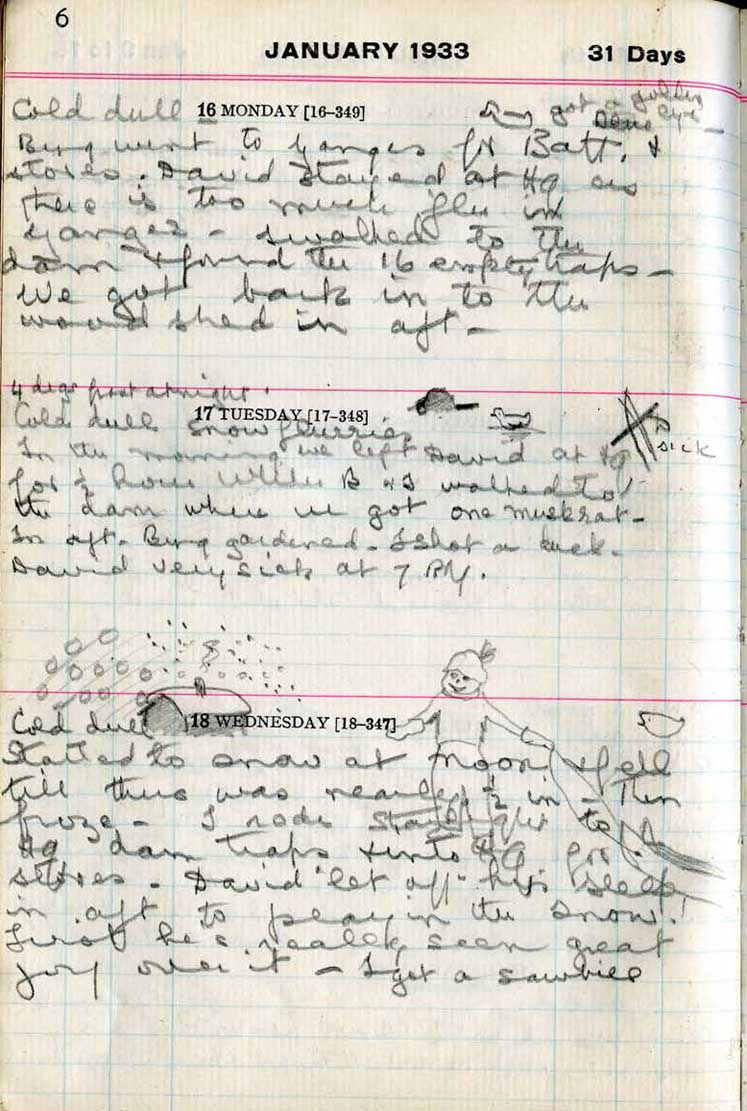 6
JANUARY 1933 31 Days
Cold dull 16 MONDAY [16-349] got a golden
eye
Bung went to Ganges for Batt. &
stores. David stayed at Hq as
there is too much flu in
Ganges - I walked to the
dam & found the 16 empty traps -
We got bark in to the
wood shed in aft -
4 degs frost at night.
Cold dull 17 TUESDAY [17-348]
snow flurries sick
In the morning we left David at Hq
for ½ hour while B & I walked to
the dam where we got one muskrat -
In aft. Bung gardened - I shot a duck.
David very sick at 7 PM.
Cold dull 18 WEDNESDAY [18-347]
Started to snow at noon & fell
till there was nearly ½ in - Then
froze - I rode to
Hq dam traps & into HQ for
stores - David "let off" his sleep
in aft to play in the snow!
First he's really seen great
joy over it - I got a sawbill